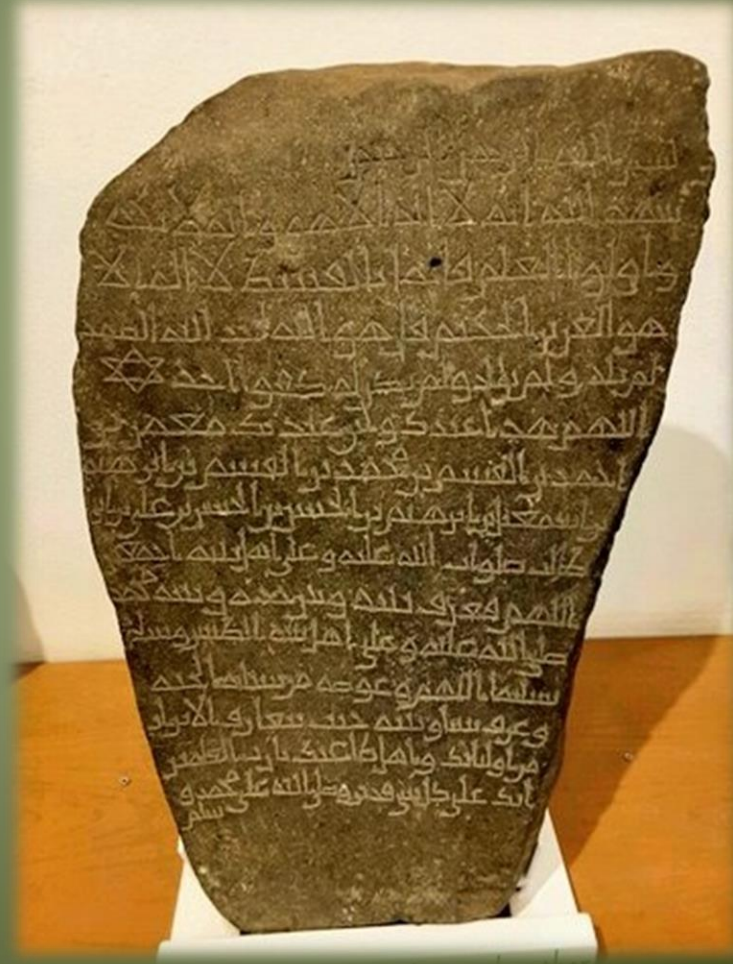 بسم الله الرحمن الرحيم
شهد الله انه لا اله الا هو والملئكة
واولوا العلم قائما بالقسط لا اله الا
هو العزيز الحكيم قل هو الله احد الله الصمد
لم يلد ولم يولد ولم يكن له كفوا احد
اللهم هذا عبدك وابن عبدك معمر بن
احمد بن القسم بن محمد بن القسم بن ابرهيم
بن اسمعيل بن ابرهيم بن الحسن بن الحسن بن علي بن ابي
طالب صلوات الله عليه وعلى اهل بيته اجمعين
اللهم فعرف بينه وبين محمد
صلى الله عليه وعلى اهل بيته الطيبين وسلم
تسليما اللهم وعوضه من الجنة
وعرف بينا وبينه حيث تعارف الابرار
من اوليائك واهل طاعتك يا رب العلمين
انك على كل شي قدير وصلى الله على محمد و
سلم